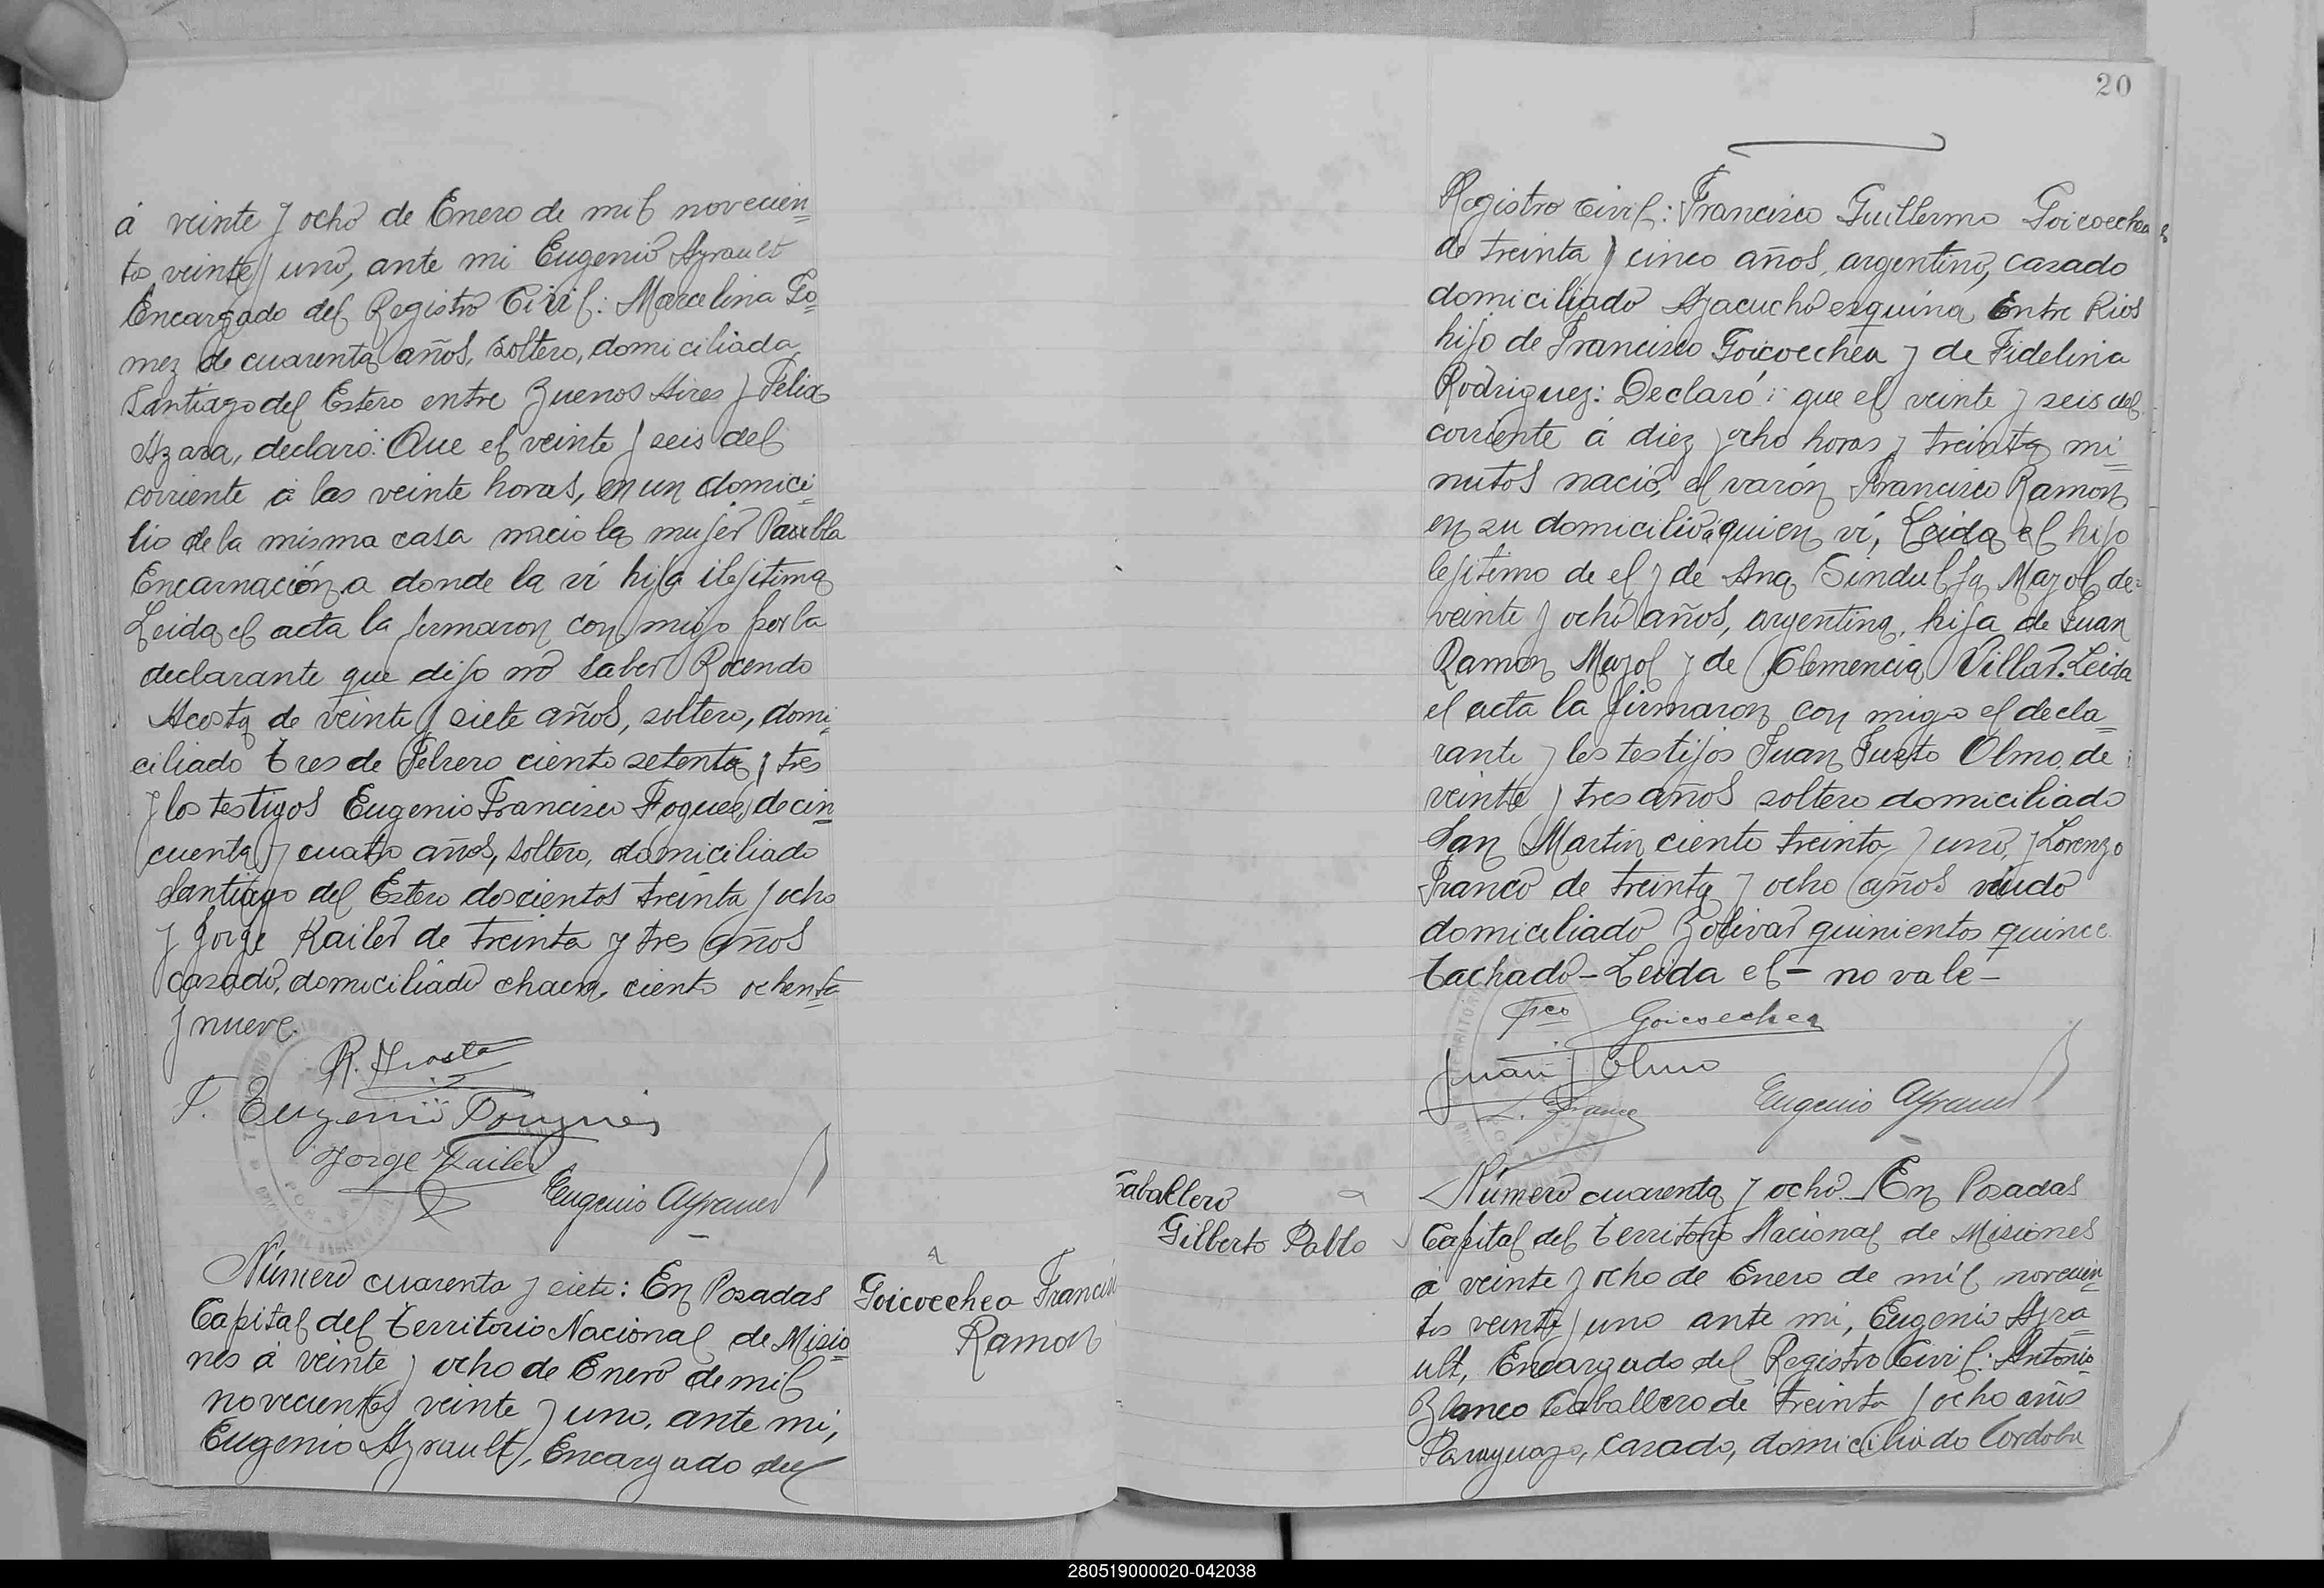 á veinte y ocho de Enero de mil novecien=
tos veinte y uno, ante mi Eugenio Ayrault
Encargado del Registro Civil: Marcelina Go=
mez de cuarenta años, soltero, domiciliada
Santiago del Estero entre Buenos Aires y Felix
Azara, declaró: Que el veinte y seis del
corriente á las veinte horas, en un domici=
lio de la misma casa nacio la mujer Paubla
Encarnación a donde la ví hija ilejitima
Leida el acta la firmaron con migo por la
declarante que dijo nó saber Rocendo
Acosta de veinte y siete años, soltero, domi=
ciliado tres de Febrero ciento setenta y tres
y los testigos Eugenio Francisco Foques, de cin=
cuenta y cuatro años, soltero, domiciliado
Santiago del Estero doscientos treinta y ocho
y Jorge Kailer de treinta y tres años
casado, domiciliado chacra ciento ochenta
y nueve.
R. Acosta
F. Eugenio
Jorge Kailer
Eugenio Ayrault
Número cuarenta y siete: En Posadas
Capital del territorio Nacional de Misio=
nes á veinte y ocho de Enero de mil
novecientos veinte y uno, ante mi,
Eugenio Ayrault, Encargado del
Goicoechea Francis
Ramon
20
Registro Civil: Francisco Guillermo Goicoechea
de treinta y cinco años, argentino, casado
domiciliado Ayacucho esquina Entre Rios
hijo de Francisco Goicoechea y de Fidelina
Rodriguez: Declaró: que el veinte y seis del
corriente á diez y ocho horas y treinta mi=
nutos nació, el varón Francisco Ramon
en su domicilio a quien ví, Leida el hijo
lejitimo de el y de Ana Sindulfa Mazol de
veinte y ocho años, argentina, hija de Juan
Ramon Mazol y de Clemencia Villar. Leida
el acta la firmaron con migo el decla=
rante y los testijos Juan Justo Olmo, de
veinte y tres años soltero domiciliado
San Martin ciento treinta y uno, y Lorenzo
Franco de treinta y ocho años viudo
domiciliado Bolivar quinientos quince
tachado - Leida el - no vale -
Fco Goicoechea
Juan J Olmo
L. Franco
Eugenio Ayrault
Caballero
Gilberto Pablo
Número cuarenta y ocho - En Posadas
Capital del territorio Nacional de Misiones
á veinte y ocho de Enero de mil novecien=
tos veinte y uno ante mi, Eugenio Ayra=
ult, Encargado del Registro Civil: Antonio
Blanco Caballero de treinta y ocho años
Paraguayo, casado, domiciliado Cordoba
280519000020-042038